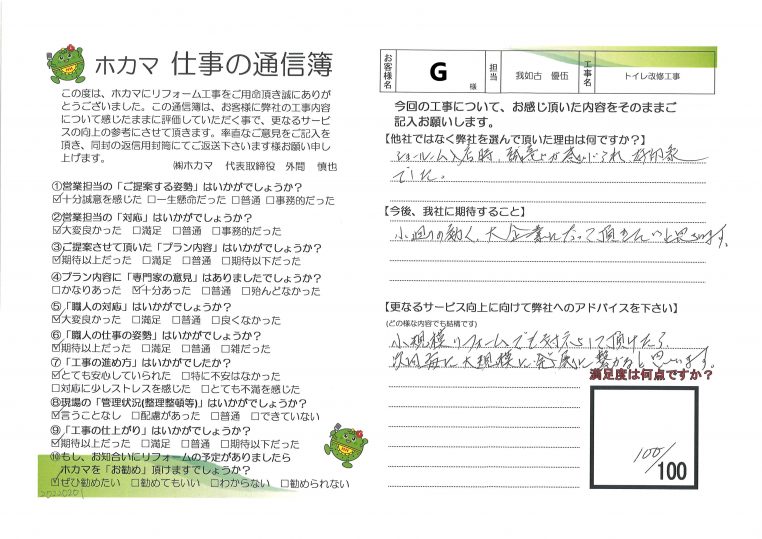 ホカマ 仕事の通信簿
この度は、ホカマにリフォーム工事をご用命頂き誠にありが
とうございました。この通信簿は、お客様に弊社の工事内容
について感じたままに評価していただく事で、更なるサービ
スの向上の参考にさせて頂きます。率直なご意見をご記入を
頂き、同封の返信用封筒にてご返送下さいます様お願い申し
上げます。
㈱ホカマ 代表取締役 外間 慎也
①営業担当の「ご提案する姿勢」はいかがでしょうか?
☑十分誠意を感じた □一生懸命だった □普通 □事務的だった
②営業担当の「対応」はいかがでしょうか?
☑大変良かった □満足 □普通 □事務的だった
③ご提案させて頂いた「プラン内容」はいかがでしょうか?
☑期待以上だった □満足 □普通 □期待以下だった
④プラン内容に「専門家の意見」はありましたでしょうか?
□かなりあった ☑十分あった □普通 □殆んどなかった
⑤「職人の対応」はいかがでしょうか?
☑大変良かった □満足 □普通 □良くなかった
⑥「職人の仕事の姿勢」はいかがでしょうか?
☑期待以上だった □満足 □普通 □雑だった
⑦「工事の進め方」はいかがでしたか?
☑とても安心していられた □特に不安はなかった
□対応に少しストレスを感じた □とても不満を感じた
⑧現場の「管理状況(整理整頓等)」はいかがでしょうか?
☑言うことなし □配慮があった □普通 □できていない
⑨「工事の仕上がり」はいかがでしょうか?
☑期待以上だった □満足 □普通 □期待以下だった
⑩もし、お知合いにリフォームの予定がありましたら
ホカマを「お勧め」頂けますでしょうか?
☑ぜひ勧めたい □勧めてもいい □わからない □勧められない
20220201
お客様名 G 様 担当 我如古 優伍 工事名 トイレ改修工事
今回の工事について、お感じ頂いた内容をそのままご
記入お願いします。
【他社ではなく弊社を選んで頂いた理由は何ですか?】
ショールーム入店時、誠意が感じられ、好印象
でした。
【今後、我社に期待すること】
小廻りの効く、大企業になって頂きたいと思います。
【更なるサービス向上に向けて弊社へのアドバイスを下さい】
(どの様な内容でも結構です)
小規模リフォームでも対応して頂けたら
次回毎に大規模に発展に繋がると思います。
満足度は何点ですか?
100/100